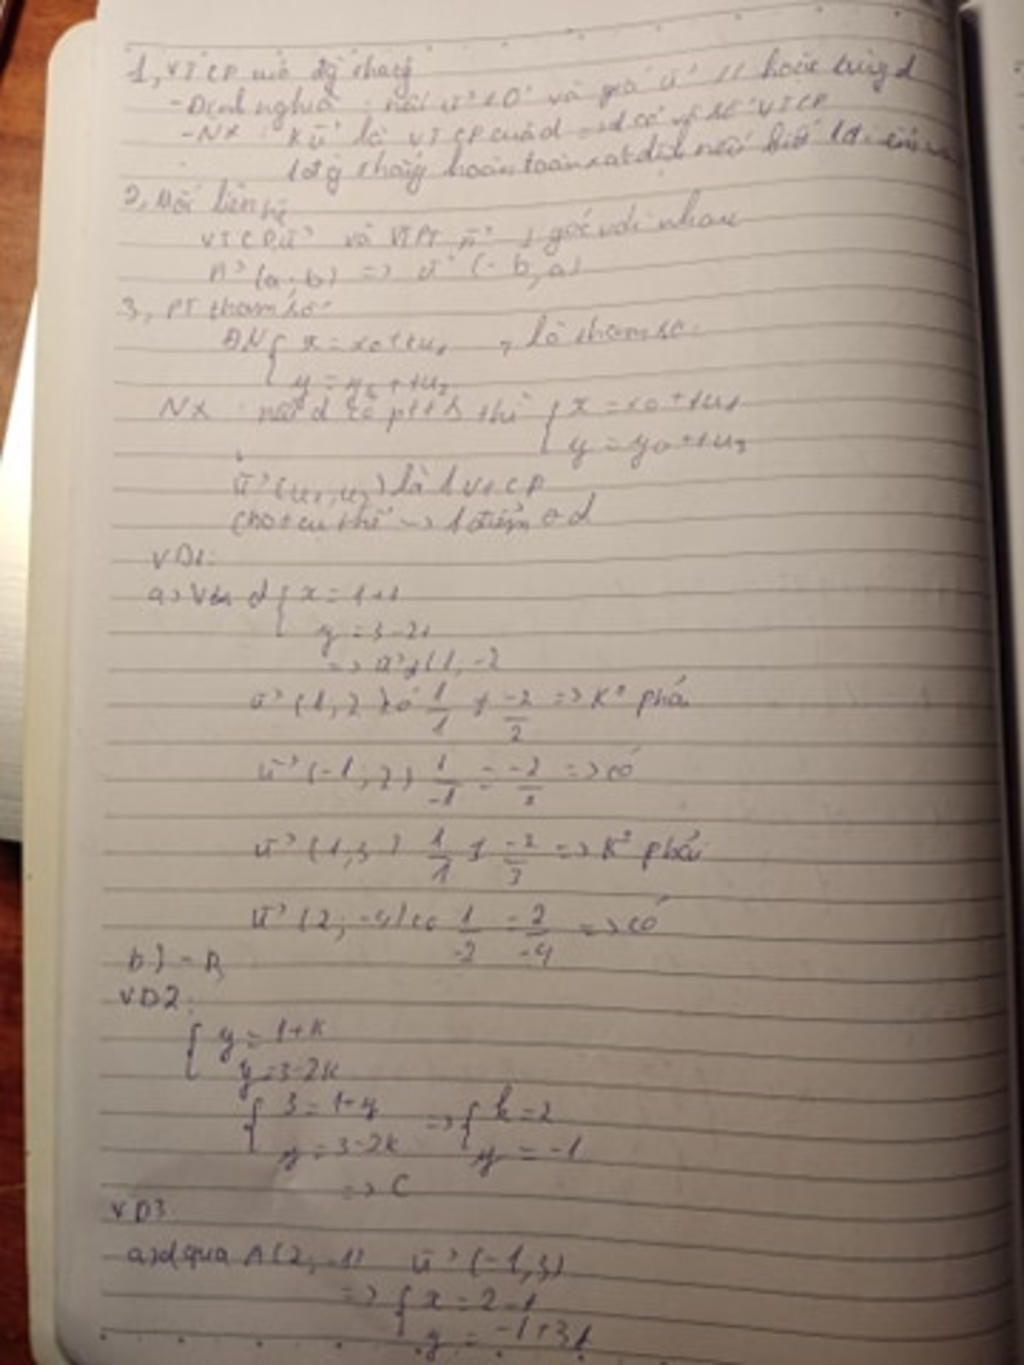 1, VTCP của đg thẳng
- Định nghĩa : nếu u→ ≠ 0→ và giá u→ // hoặc trùng d
- NX : k u→ là VTCP của d => d có vô số VTCP
1 đg thẳng hoàn toàn xác định nếu biết 1
2, Mối liên hệ
VTCP u→ và VTPT n→ ⊥ góc với nhau
n→ (a; b) => u→ (-b, a)
3, PT tham số
ĐN { x = x0 + tu1 , là tham số
y = y0 + tu2
NX : nếu d có ptts thì { x = x0 + tu1
y = y0 + tu2
u→ (u1, u2) là 1 VTCP
Cho t cụ thể -> 1 điểm ∈ d
VD1:
a) d { x = 1 + t
y = 3 - 2t
=> (1, -2
u→ (1, 2) có 1/1 ≠ -2/2 => K° phải
u→ (-1; 2) 1/-1 = -2/2 => có
u→ (1, 3) 1/1 ≠ -2/3 => K° phải
u→ (2; -4) có 1/-2 = 2/-4 => có
b) - B
VD2:
{ y = 1 + k
y = 3 - 2k
{ 3 = 1 + y => { k = 2
y = 3 - 2k y = -1
=> C
VD3
a) d qua A (2; -1) u→ (-1, 3)
=> { x = 2 - t
y = -1 + 3t